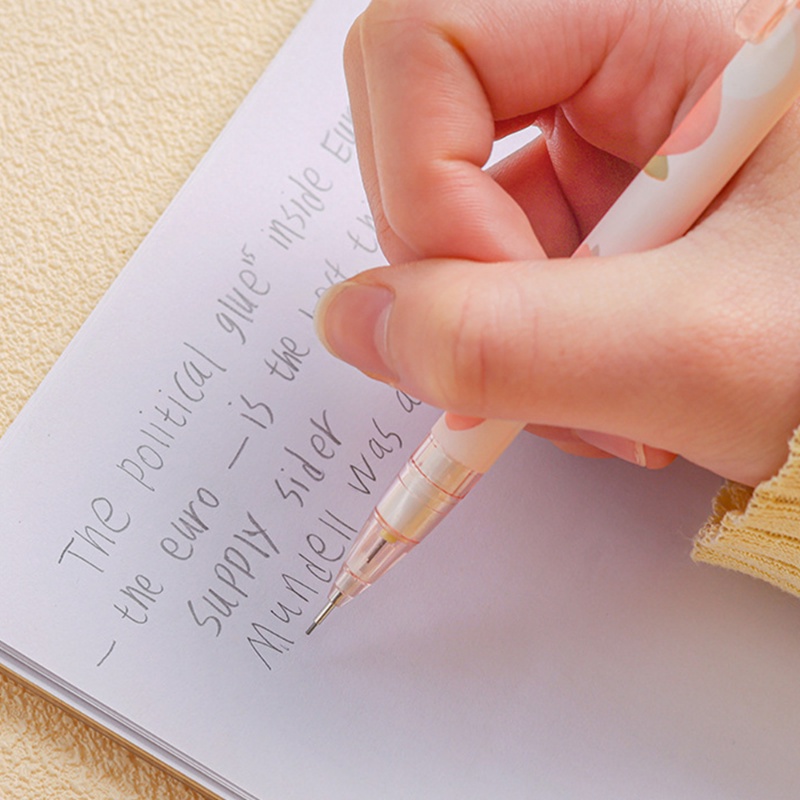 The political glue" inside
– the euro – is the
supply sider
Mundell was